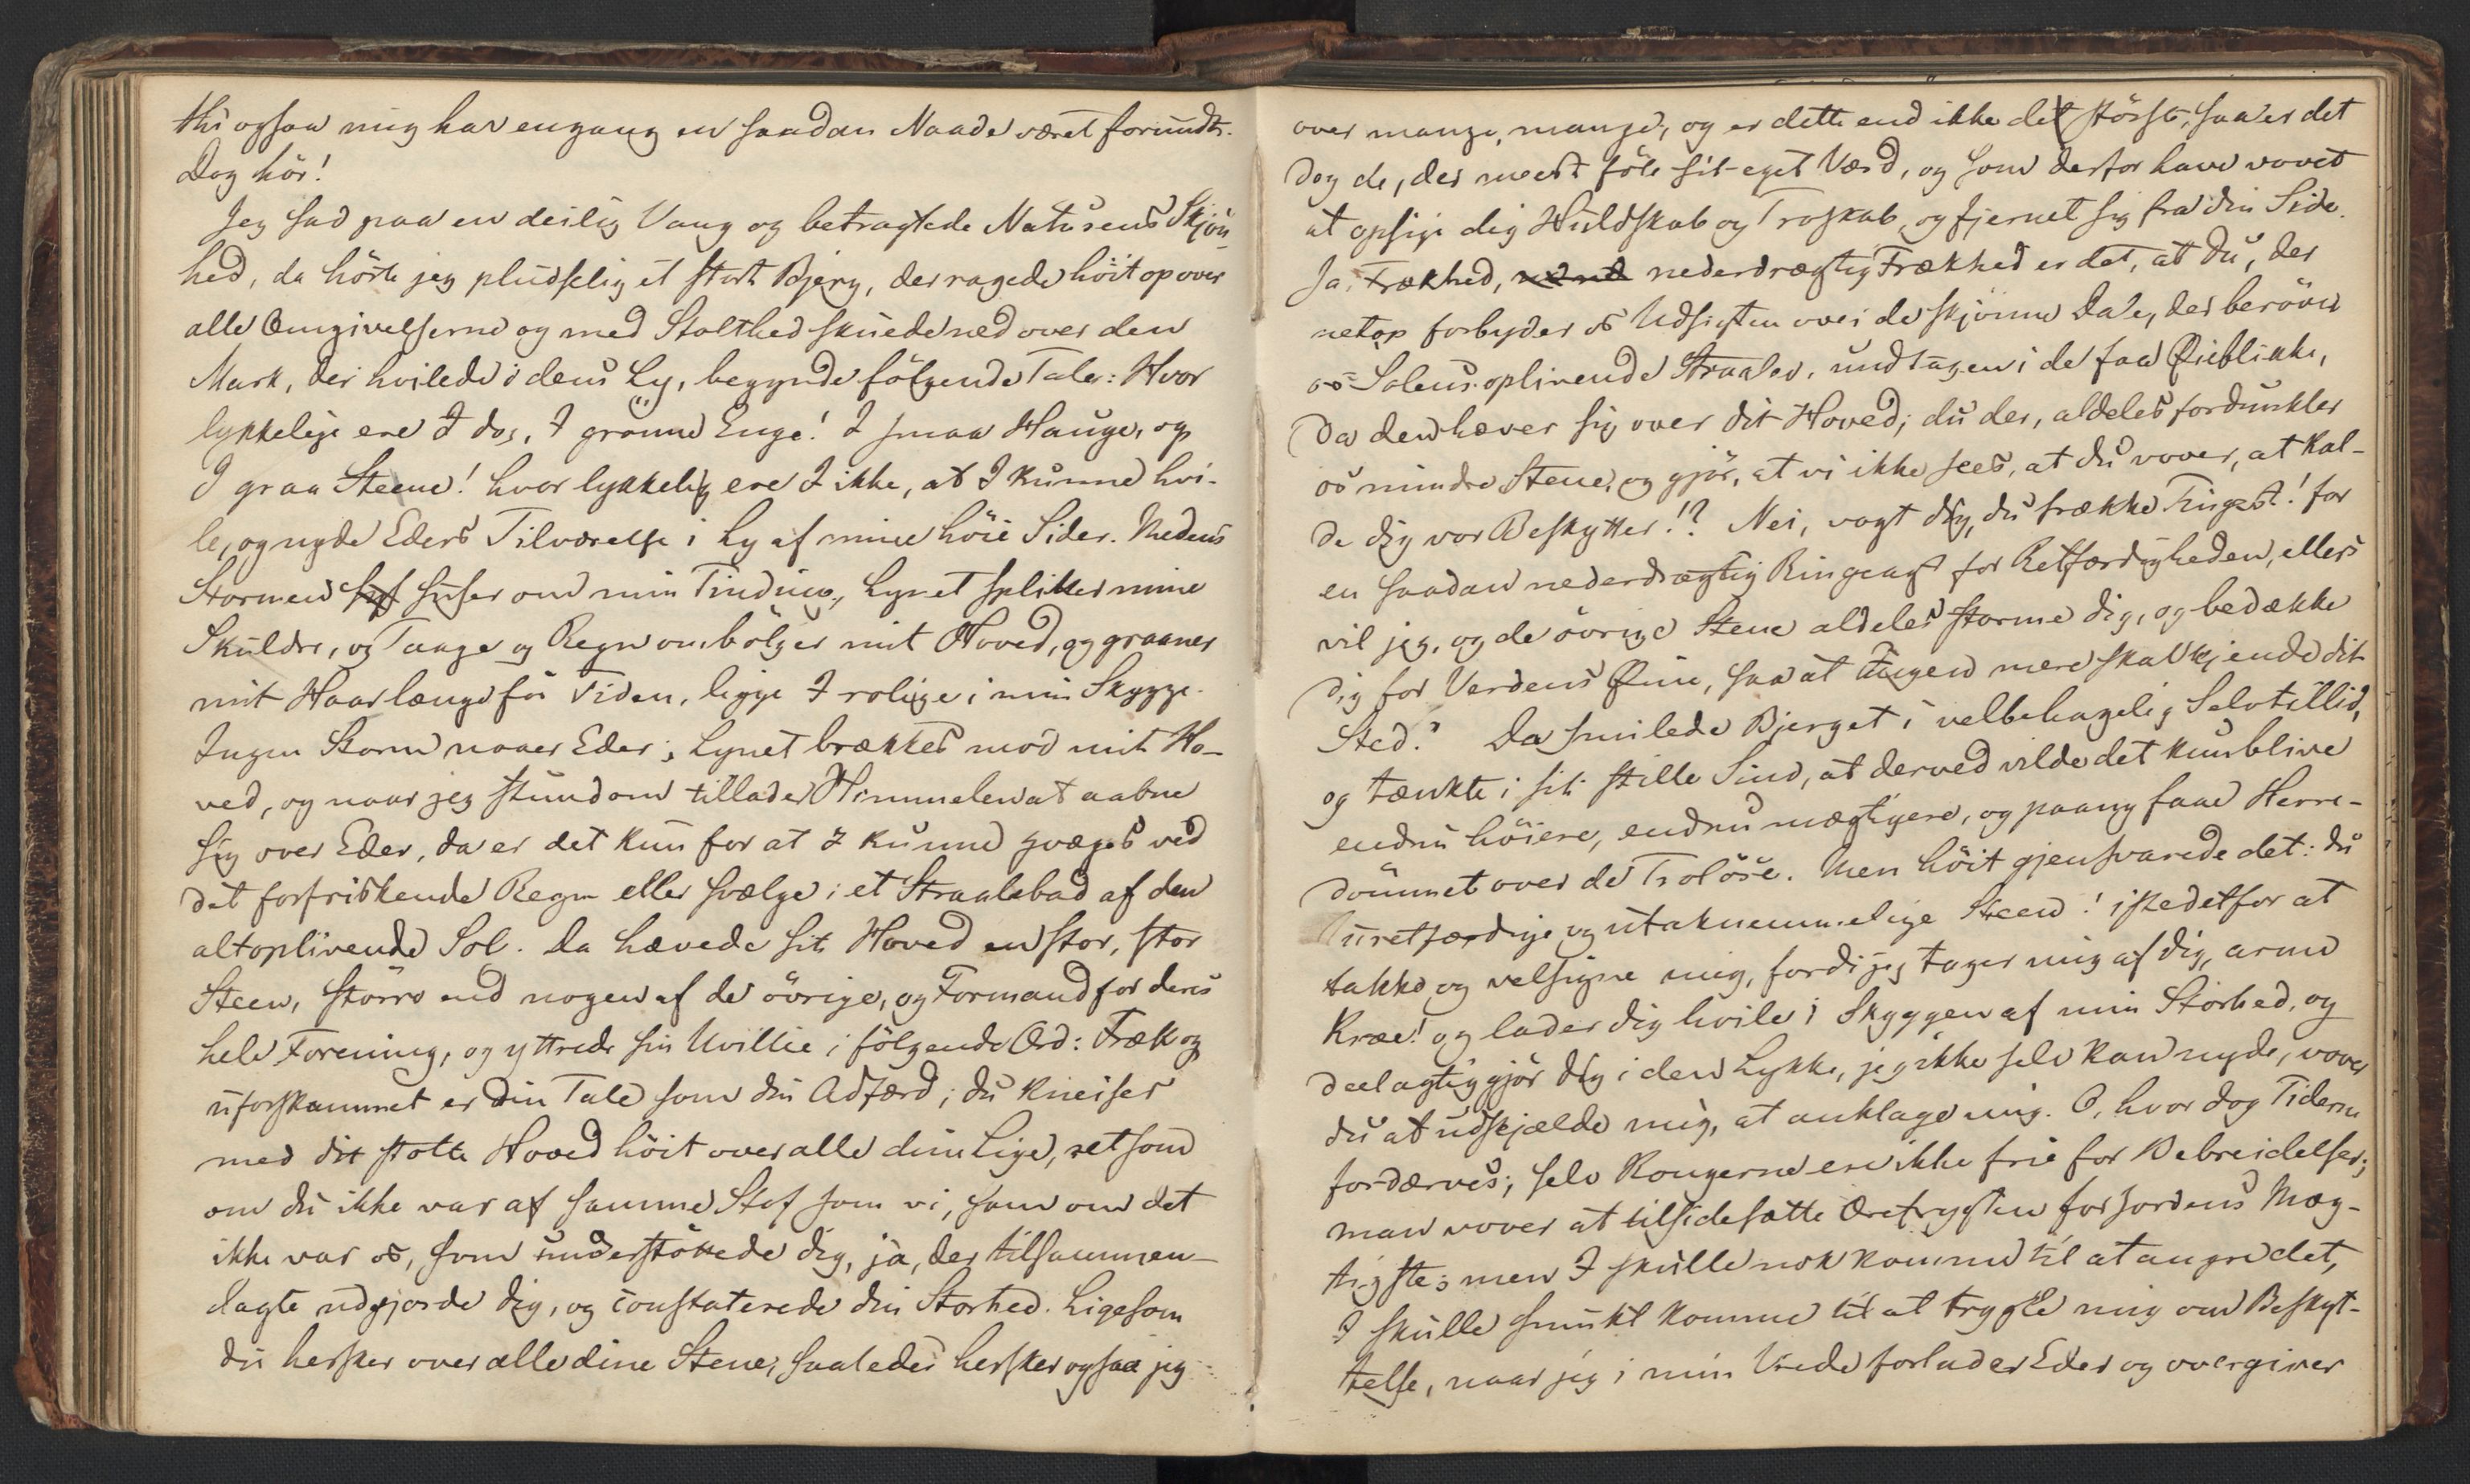 thi ogsaa mig har engang en saadan Naade været forundt.
Dog hör!
Jeg sad paa en deilig Vang og betragtede Naturens Skjön-
hed, da hörte jeg pludselig et stort Bjerg, der ragede höit op over
alle Omgivelserne og med Stolthed skuede ned over den
Mark, der hvilede i dens Ly, begynde fölgende Tale: Hvor
lykkelige ere I dog, I grönne Enge! I smaa Hauge, og
I graa Steene! hvor lykkelig ere I ikke, at I kunne hvi-
le, og nyde Eders Tilværelse i Ly af mine höie Sider. Medens
Stormen suser om min Tinding, Lynet splitter mine
Skuldre, og Taage og Regn ombölger mit Hoved, og graaner
mit Haar længe för Tiden, ligge I rolige i min Skygge.
Ingen Storm naaer Eder; Lynet brækkes mod mit Ho-
ved, og naar jeg stundom tillader Himmelen at aabne
sig over Eder, da er det kun for at I kunne qvæges ved
det forfriskende Regn eller svælge i et Straalebad af den
altoplivende Sol. Da hævede sit Hoved en stor, stor
Steen, större end nogen af de övrige, og Formand for deres
hele Forening, og yttrede sin Uvillie i fölgende Ord: Fræk og
uforskammet er din Tale som din Adfærd; du kneiser
med dit stolte Hoved höit over alle dine Lige, ret som
om du ikke var af samme Stof som vi, som om det
ikke var os, som understöttede dig, ja, der tilsammen-
lagte udgjorde dig, og constaterede din Storhed. Ligesom
du hersker over alle dine Stene, saaledes hersker ogsaa jeg
over mange, mange, og er dette end ikke det störste, saa er det
dog de, der meest föle sit eget Værd, og som derfor have vovet
at opsige dig Huldskab og Troskab, og fjernet sig fra din Side.
Ja, Frækhed, nederdrægtig Frækhed er det, at du, der
netop forbyder os Udsigten over de skjönne Dale, der beröver
os Solens oplivende Straaler, undtagen i de faa Øieblikke,
da den hæver sig over dit Hoved; du der, aldeles fordunkler
os mindre Stene, og gjör, at vi ikke sees, at du vover, at kal-
de dig vor Beskytter!? Nei, vogt dig, du frække Tingest! for
en saadan nederdrægtig Ringeagt for Retfærdigheden, ellers
vil jeg, og de övrige Stene aldeles storme dig, og bedække
dig for Verdens Øine, saa at Ingen mere skal kjende dit
Sted." Da smilede Bjerget i velbehagelig Selvtillid,
og tænkte i sit stille Sind, at derved vilde det kun blive
endnu höiere, endnu mægtigere, og paany faae Herre-
dömmet over de Trolöse. Men höit gjensvarede det: du
uretfærdige og utaknemmelige Steen! istedetfor at
takke og velsigne mig, fordi jeg tager mig af dig, arme
Kræe! og lader dig hvile i Skyggen af min Storhed, og
deelagtiggjör dig i den Lykke, jeg ikke selv kan nyde, vover
du at udskjælde mig, at anklage mig. O, hvor dog Tiderne
fordærves; selv Kongerne ere ikke frie for Bebreidelser;
man vover at tilsidesætte Ærefrygten for Jordens Mæg-
tigste; men I skulle nok komme til at angre det,
I skulle smukt komme til at trygle mig om Beskyt-
telse, naar jeg i min Vrede forlader Eder og overgiver